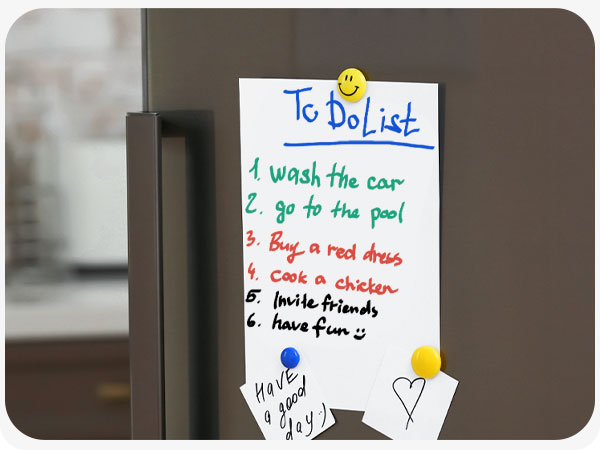 To Do List
1. wash the car
2. go to the pool
3. Buy a red dress
4. cook a chicken
5. Invite friends
6. have fun :)
HAVE
a good
day :)